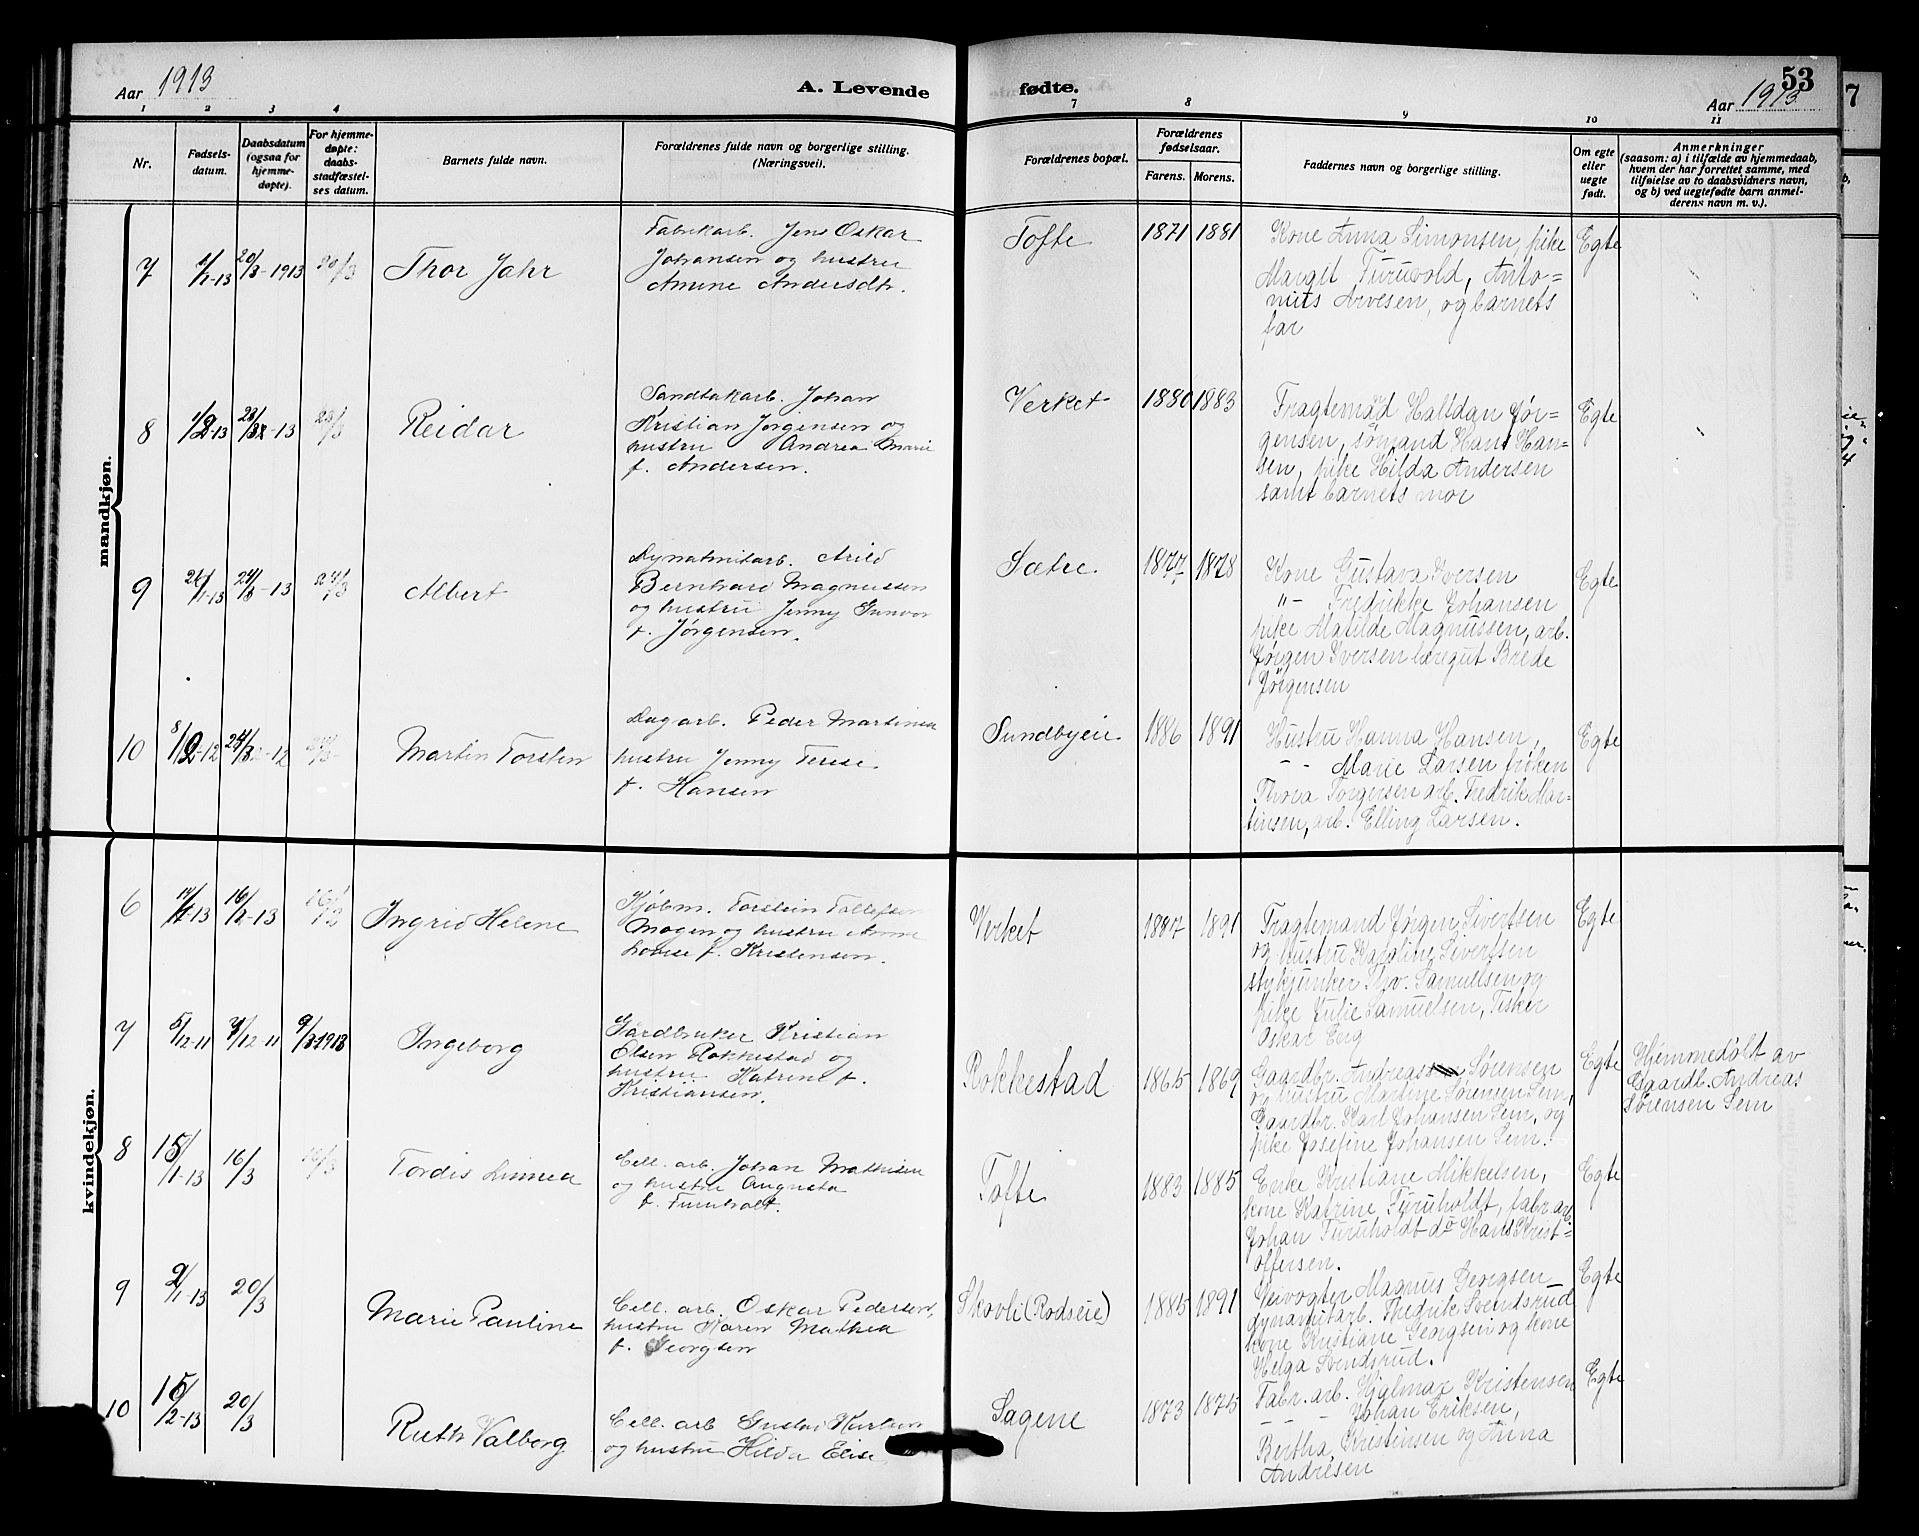 Aar 1913
A. Levende
fødte.
53
Aar 1913
7
1 2 3 4
7 8 9 10 11
Nr.
Fødsels-
datum.
Daabsdatum
(ogsaa for
hjemme-
døpte).
For hjemme-
døpte:
daabs-
stadfæstel-
ses datum.
Barnets fulde navn.
Forældrenes fulde navn og borgerlige stilling.
(Næringsvei).
Forældrenes bopæl.
Forældrenes
fødselsaar.
Farens. Morens.
Faddernes navn og borgerlige stilling.
Om egte
eller
uegte
født.
Anmerkninger
(saasom: a) i tilfælde av hjemmedaab,
hvem der har forrettet samme, med
tilføielse av to daabsvidners navn,
og b) ved uegtefødte barn anmel-
derens navn m. v.).
mandkjøn.
7
1/1-13
20/3-1913
20/3
Thor Jahr
Fabrikarb. Jens Oskar
Johansen og hustru
Amine Andersdtr.
Tofte
1871 1881
Kone Anna Simonsen, pike
Margit Furuvold, Anto-
nius Arvesen, og barnets
far
Egte
8
1/2-13
23/3-13
23/3
Reidar
Sandtakarb. Johan
Kristian Jørgensen og
hustru Andrea Marie
f. Andersen.
Verket
1880 1883
Fragtemand Halfdan Jør-
gensen, sømand Hans Han-
sen, pike Hilda Andersen
samt barnets mor
Egte
9
26/1-13
24/3-13
24/3
Albert
Dynamitarb. Arild
Bernhard Magnussen
og hustru Jenny Gunvor
f. Jørgensen.
Sætre
1877 1878
Kone Gustava Iversen
"- Fredrikke Johansen
pike Matilde Magnussen, arb.
Jørgen Iversen læregut Brede
Jørgensen
Egte
10
8/12-12
24/3-12
24/3
Martin Torsten
Dagarb. Peder Martinsen
hustru Jenny Terese
f. Hansen
Sundbyeie
1886 1891
Hustru Hanna Hansen,
- - Marie Larsen frøken
Thora Torgersen arb. Fredrik Mar-
tinsen, arb. Elling Larsen.
Egte
kvindekjøn.
6
-13
16/3-13
16/3
Ingrid Helene
Kjøbm. Torstein Tollefsen
Mogen og hustru Anna
Lovise f. Kristensen.
Verket
1887 1891
Fragtemand Jørgen Sivertsen
og hustru Karoline Sivertsen
stykjunker Thv. Samuelsen og
pike Julie Samuelsen, Fisker
Oskar Eng
Egte
7
5/12-11
/12-11
9/3-1913
Ingeborg
Gårdbruker Kristian
Olsen Rokkestad og
hustru Katrine f.
Kristiansen.
Rokkestad
1865 1869
Gaardbr. Andreas Sørensen
og hustru Martine Sørensen Sem,
Gaardbr. Karl Johansen Sem, og
pike Josefine Johansen Sem.
Egte
Hjemmedøbt av
Gaardb. Andreas
Sørensen Sem
8
15/1-13
16/3
16/3
Tordis Linnea
Cell. arb. Johan Mathisen
og hustru Augusta
f. Furuholt.
Tofte
1883 1885
Enke Kristiane Mikkelsen,
kone Katrine Furuholdt, fabr. arb.
Johan Furuholdt do Hans Krist-
offersen.
Egte
9
9/1-13
20/3
Marie Pauline
Cell. arb. Oskar Pedersen,
hustru Karen Mathea
f. Georgsen
Skovli (Rødseie)
1885 1891
Veivogter Magnus Georgsen
dynamitarb. Fredrik Svendsrud
kone Kristiane Georgsen og kone
Helga Svendsrud.
Egte
10
15/2-13
20/3
Ruth Valborg
Cell. arb Gustav
og hustru Hilda Elise
Sagene
1873 1875
Fabr. arb. Hjalmar Kristensen
- - - Johan Eriksen,
Bertha Kristensen og Anna
Andresen
Egte